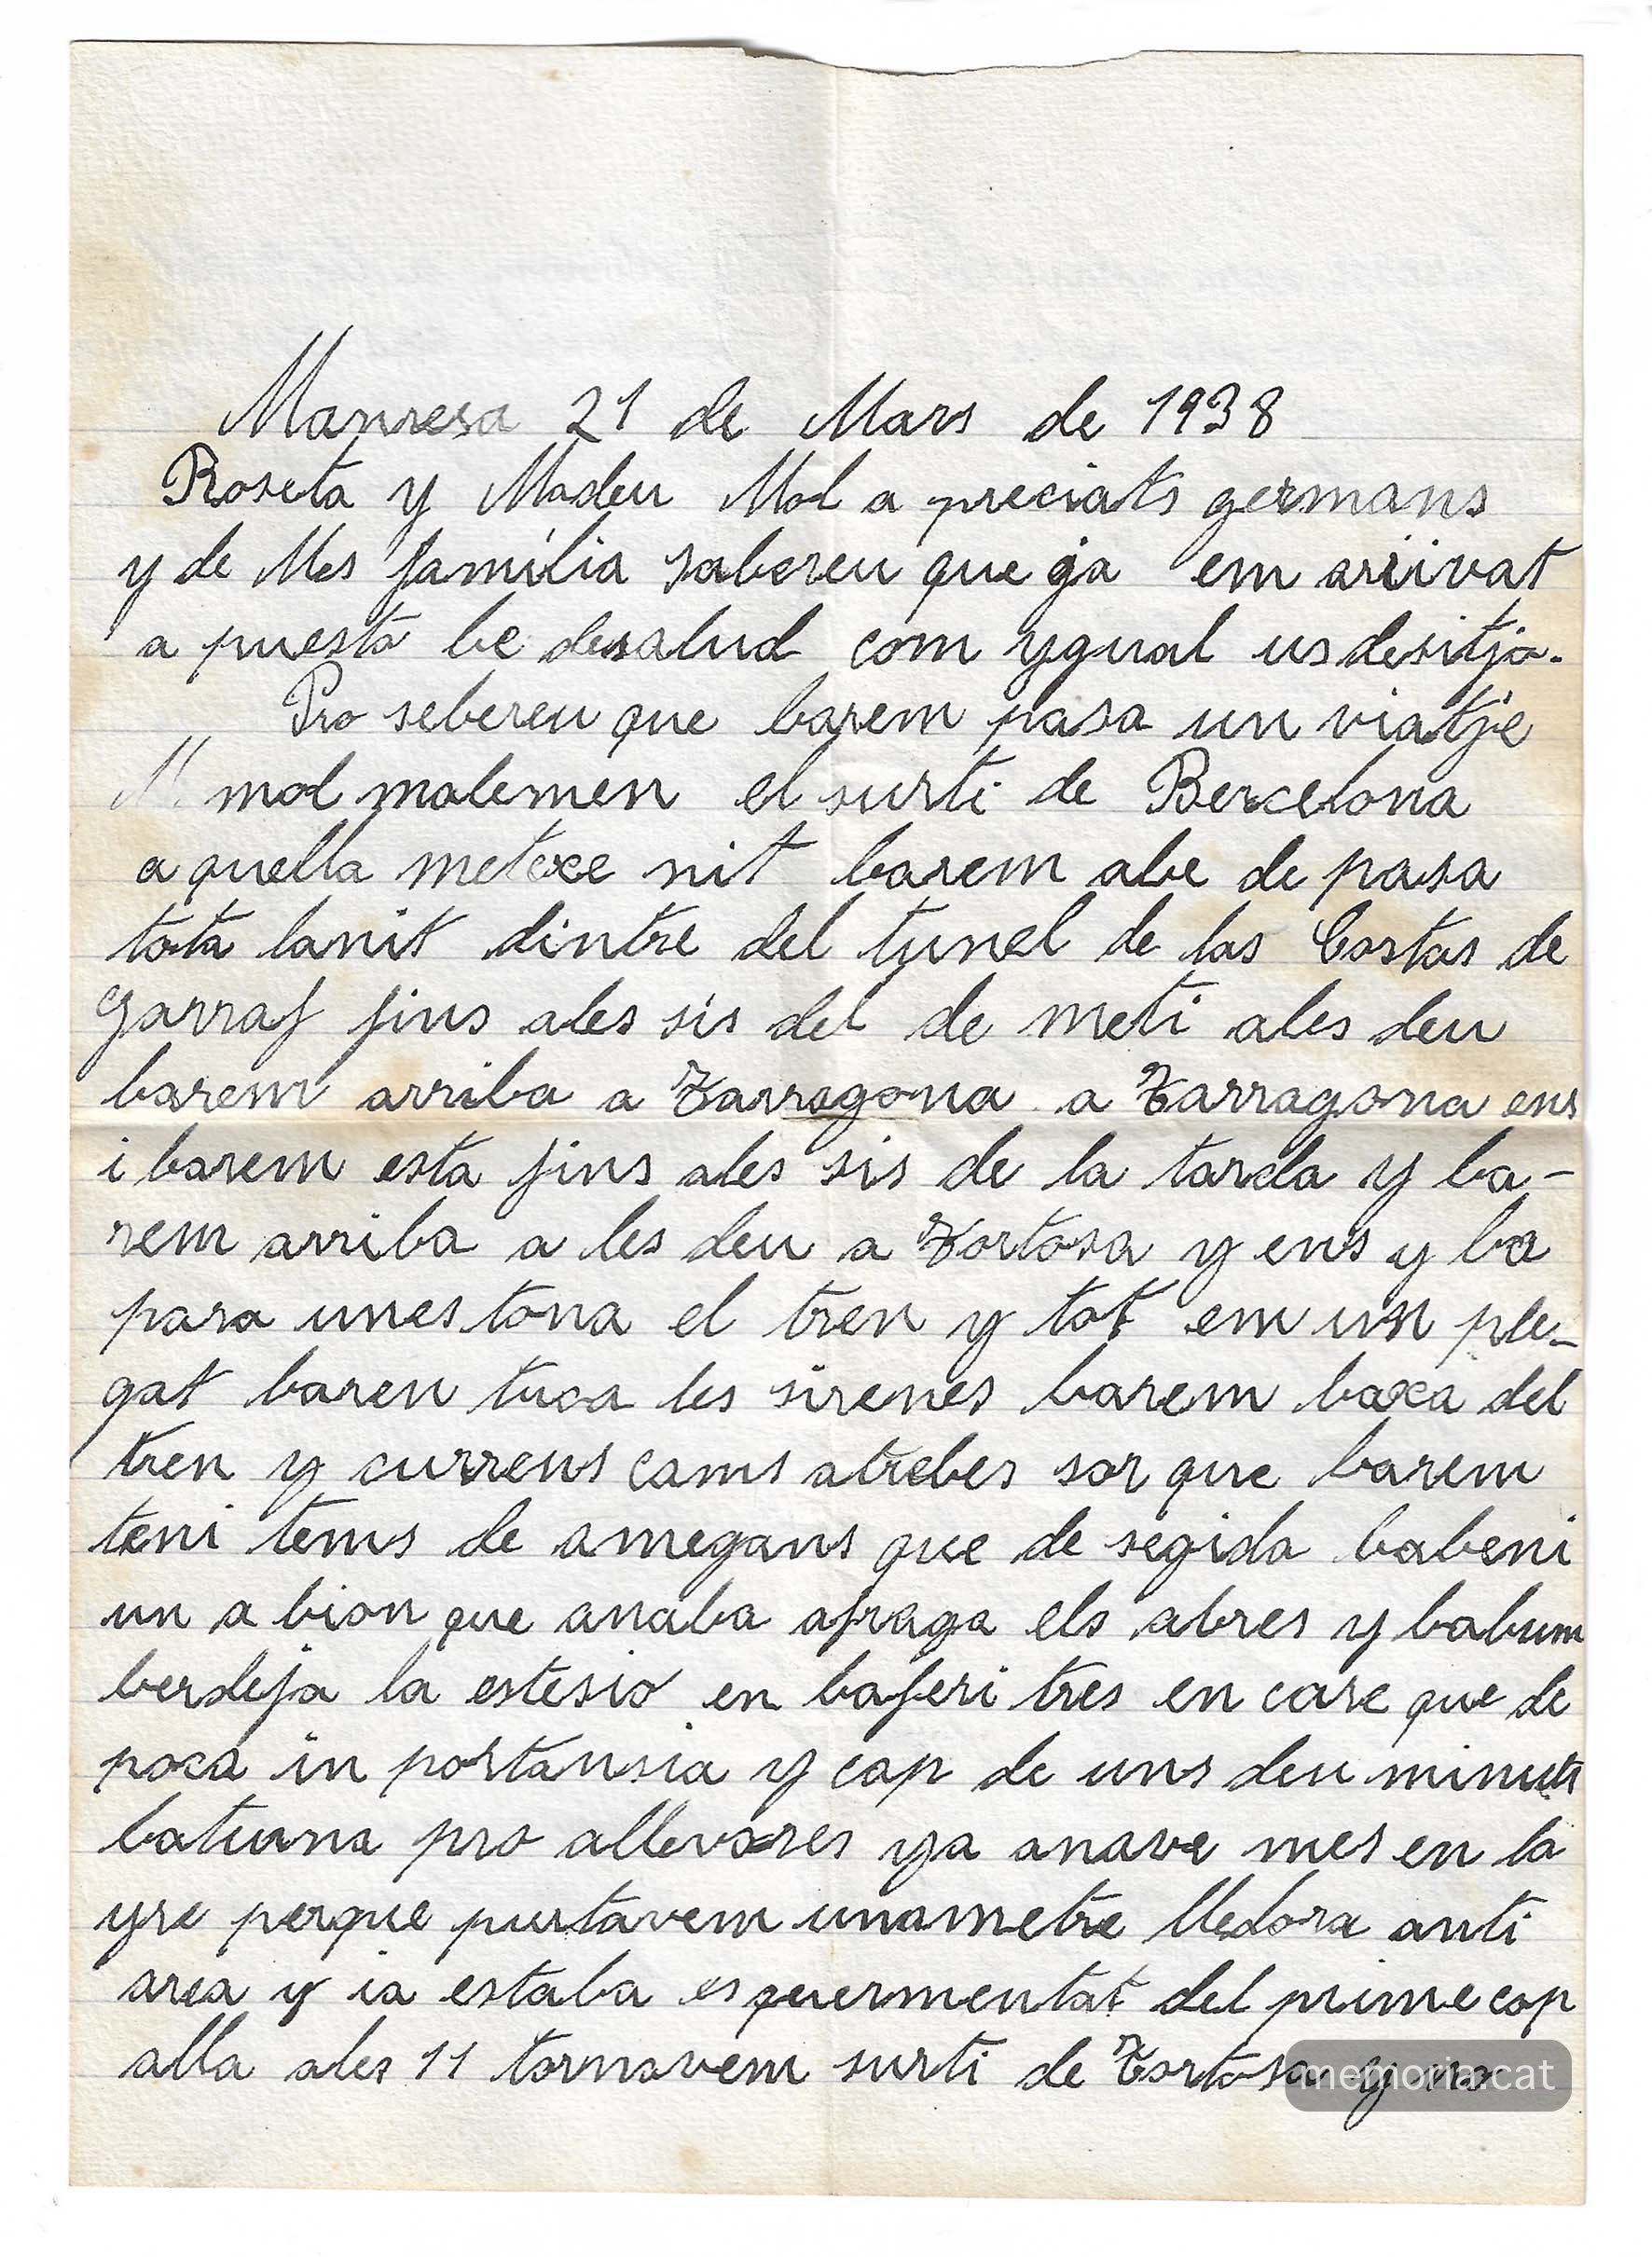 Manresa 21 de Mars de 1938
Roseta y Madeu Mol a preciats germans
y de Mes família sabereu que ja em ariivat
a puesto be desalud com ygual us desitjo.
Pro sebereu que barem pasa un viatje
M mol malemen el surti de Bercelona
a quella metexe nit barem abe de pasa
tota lanit dintre del tunel de las Costas de
Garraf fins ales sis del de meti ales deu
barem arriba a Tarragona a Tarragona ens
i barem esta fins ales sis de la tarda y ba-
rem arriba a les deu a Tortosa y ens y ba
para unes tona el tren y tot em un ple-
gat baren tuca les sirenes barem baxa del
tren y currens cams atrebes sor que barem
teni tems de amegans que de segida babeni
un a bion que anaba apraga els abres y babum
berdeja la estesio en baferi tres en care que de
poca in portansia y cap de uns deu minuts
baturna pro allevores ya anave mes en la
yre perque purtavem unametre lledora anti
area y ia estaba esquermentat del prime cop
alla ales 11 tornavem surti de Tortosa y no
memoria.cat